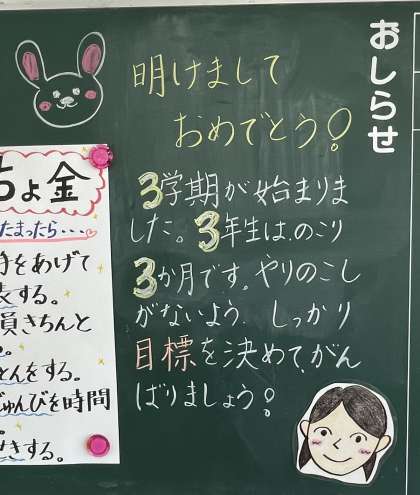 おしらせ
明けまして
おめでとう!
3学期が始まりま
した。3年生は、のこり
3か月です。やりのこし
がないよう、しっかり
目標を決めて、がん
ばりましょう!
ちょ金
たまったら・・・
をあげて
する。
員きちんと
。
とんをする。
じゅんびを時間
。
きする。